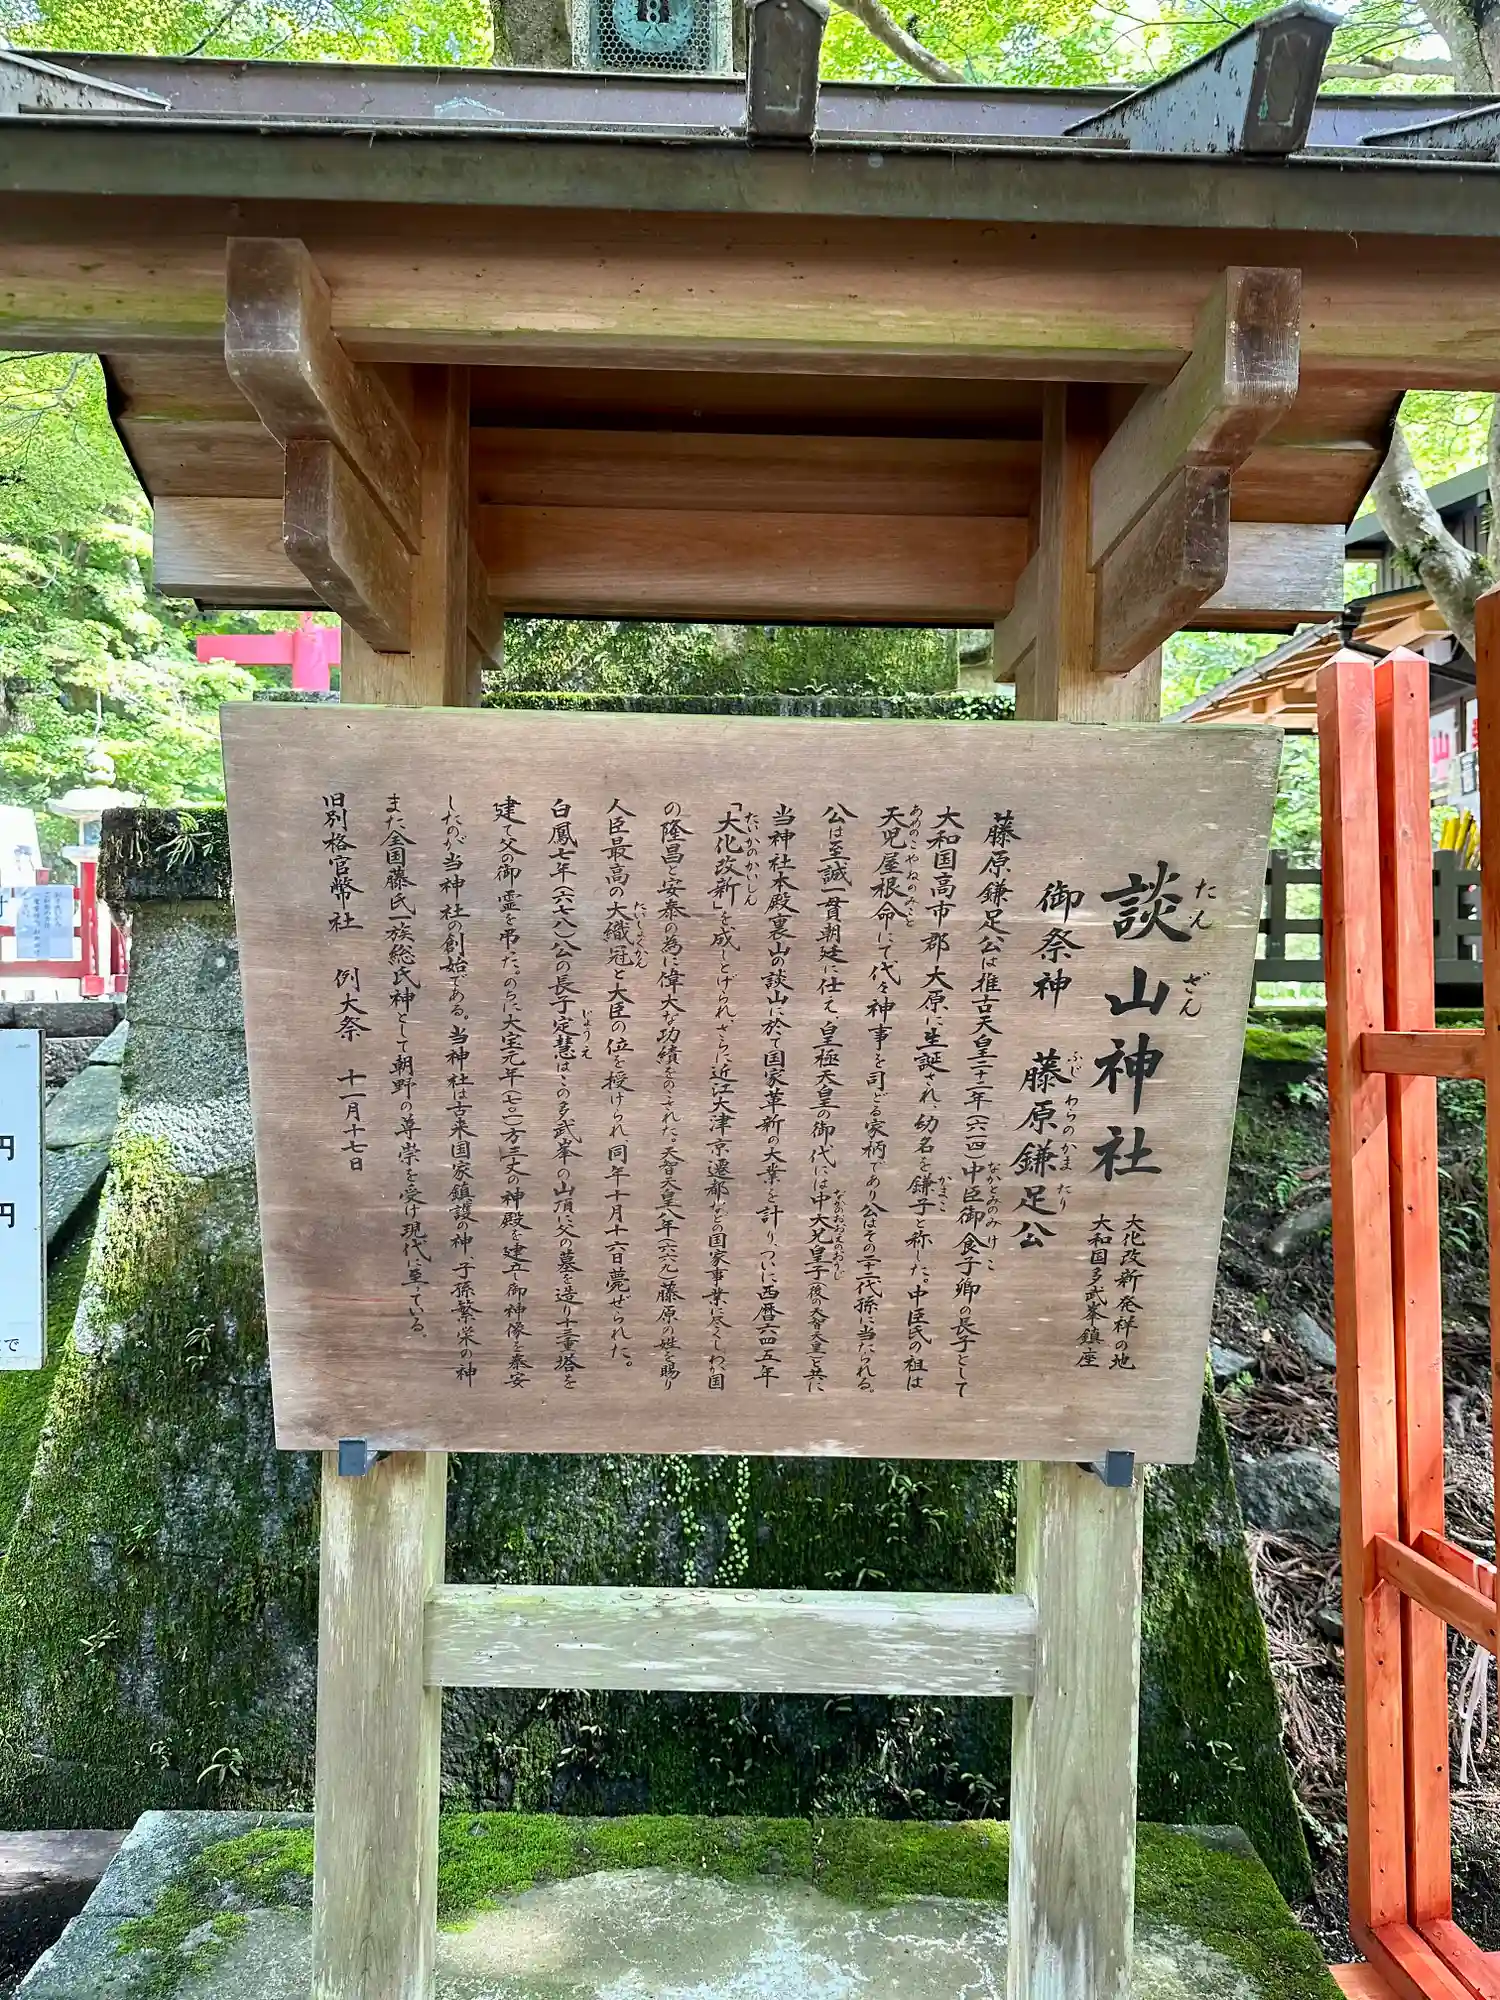 談山神社
たんざん
大化改新発祥の地
大和国多武峯鎮座
御祭神 藤原鎌足公
ふじわらのかまたり
藤原鎌足公は推古天皇二十二年(六一四)中臣御食子卿の長子として
なかとみのみけこ
大和国高市郡大原に生誕され、幼名を鎌子と称した。中臣氏の祖は
かまこ
天児屋根命にて代々神事を司どる家柄であり公はその二十二代孫に当たられる。
あめのこやねのみこと
公は至誠一貫朝廷に仕え、皇極天皇の御代には中大兄皇子(後の天智天皇)と共に
なかのおおえのおうじ
当神社本殿裏山の談山に於て国家革新の大業を計り、ついに西暦六四五年
「大化改新」を成しとげられ、さらに近江大津京遷都などの国家事業に尽くしわが国
たいかのかいしん
の隆昌と安泰の為に偉大な功績をのこされた。天智天皇八年(六六九)藤原の姓を賜り
人臣最高の大織冠と大臣の位を授けられ同年十月十六日薨ぜられた。
たいしょくかん
白鳳七年(六七八)公の長子定慧はこの多武峯の山頂に父の墓を造り十三重塔を
じょうえ
建て父の御霊を弔た。のちに大宝元年(七〇一)方三丈の神殿を建立し御神像を奉安
したのが当神社の創始である。当神社は古来国家鎮護の神、子孫繁栄の神
また全国藤氏一族総氏神として朝野の尊崇を受け現代に至っている。
旧別格官幣社 例大祭 十一月十七日
円
円
で